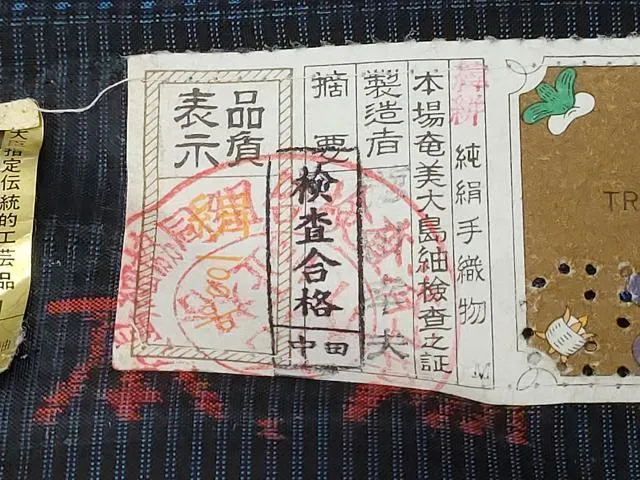 TR
純絹手織物
本場奄美大島紬検査之証
製造者
摘要
検査合格
中田
品質
表示
絹100%
指定伝統的工芸品